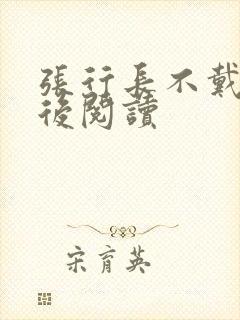 張行長不戴
後閱讀
宋育英